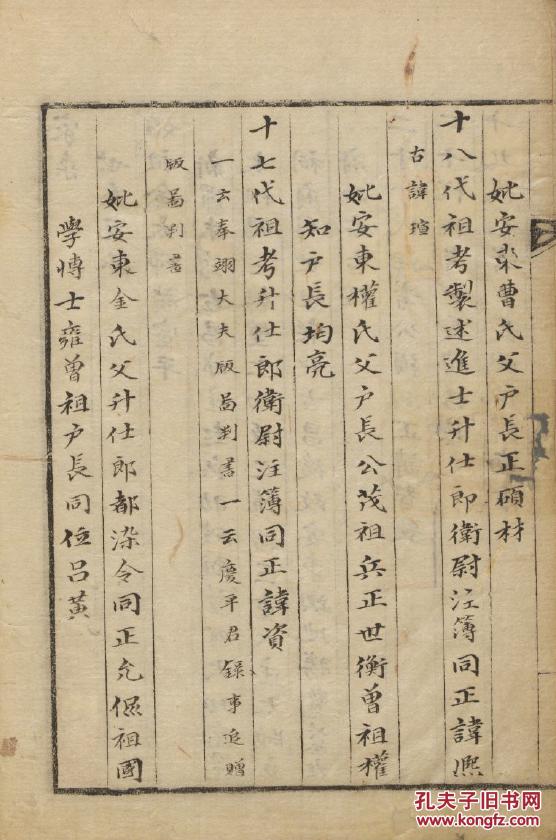 妣安東曹氏父戶長正碩材
十八代祖考製述進士升仕郎衛尉注簿同正諱熈
古諱瑄
妣安東權氏父戶長公茂祖兵正世衡曾祖權
知戶長均亮
十七代祖考升仕郎衛尉注簿同正諱資
一云奉翊大夫版啚判書一云慶平君錄事追贈
版啚判書
妣安東金氏父升仕郎都染令同正允偘祖國
學博士雍曾祖戶長同位呂黃
孔夫子旧书网
www.kongfz.com